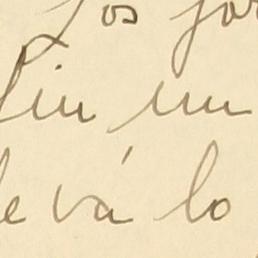 Los jor
Sin un
levá lo